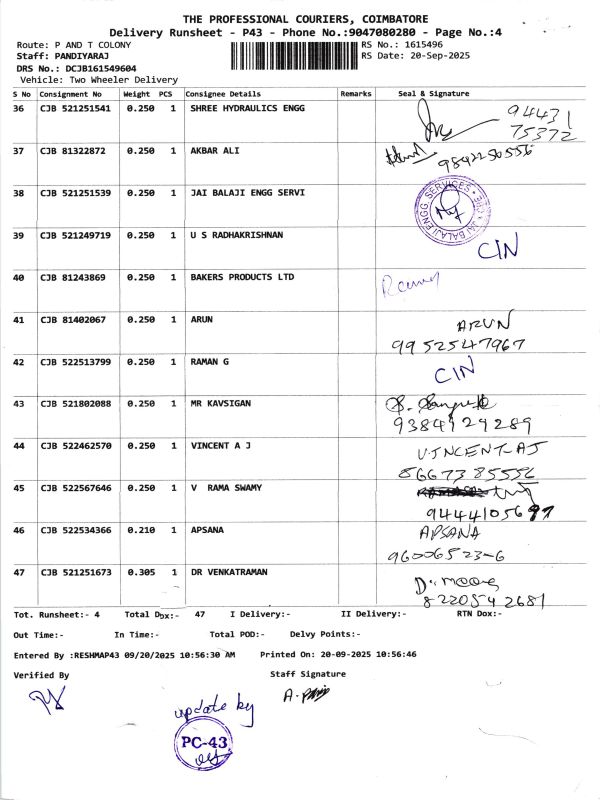 THE PROFESSIONAL COURIERS, COIMBATORE
Delivery Runsheet - P43 - Phone No.:9047080280 - Page No.:4
Route: P AND T COLONY RS No.: 1615496
Staff: PANDIYARAJ RS Date: 20-Sep-2025
DRS No.: DCJB161549604
Vehicle: Two Wheeler Delivery
S No Consignment No Weight PCS Consignee Details Remarks Seal & Signature
36 CJB 521251541 0.250 1 SHREE HYDRAULICS ENGG 94431
75372
37 CJB 81322872 0.250 1 AKBAR ALI 9842250556
38 CJB 521251539 0.250 1 JAI BALAJI ENGG SERVI JAI BALAJI ENGG SERVICES CBE
39 CJB 521249719 0.250 1 U S RADHAKRISHNAN CIN
40 CJB 81243869 0.250 1 BAKERS PRODUCTS LTD
41 CJB 81402067 0.250 1 ARUN ARUN
9952547967
42 CJB 522513799 0.250 1 RAMAN G CIN
43 CJB 521802088 0.250 1 MR KAVSIGAN
9384929289
44 CJB 522462570 0.250 1 VINCENT A J VINCENT-AJ
8667385556
45 CJB 522567646 0.250 1 V RAMA SWAMY
9444105697
46 CJB 522534366 0.210 1 APSANA APSANA
96006523-6
47 CJB 521251673 0.305 1 DR VENKATRAMAN
8220542681
Tot. Runsheet:- 4 Total Dox:- 47 I Delivery:- II Delivery:- RTN Dox:-
Out Time:- In Time:- Total POD:- Delvy Points:-
Entered By :RESHMAP43 09/20/2025 10:56:30 AM Printed On: 20-09-2025 10:56:46
Verified By Staff Signature
update by
PC-43